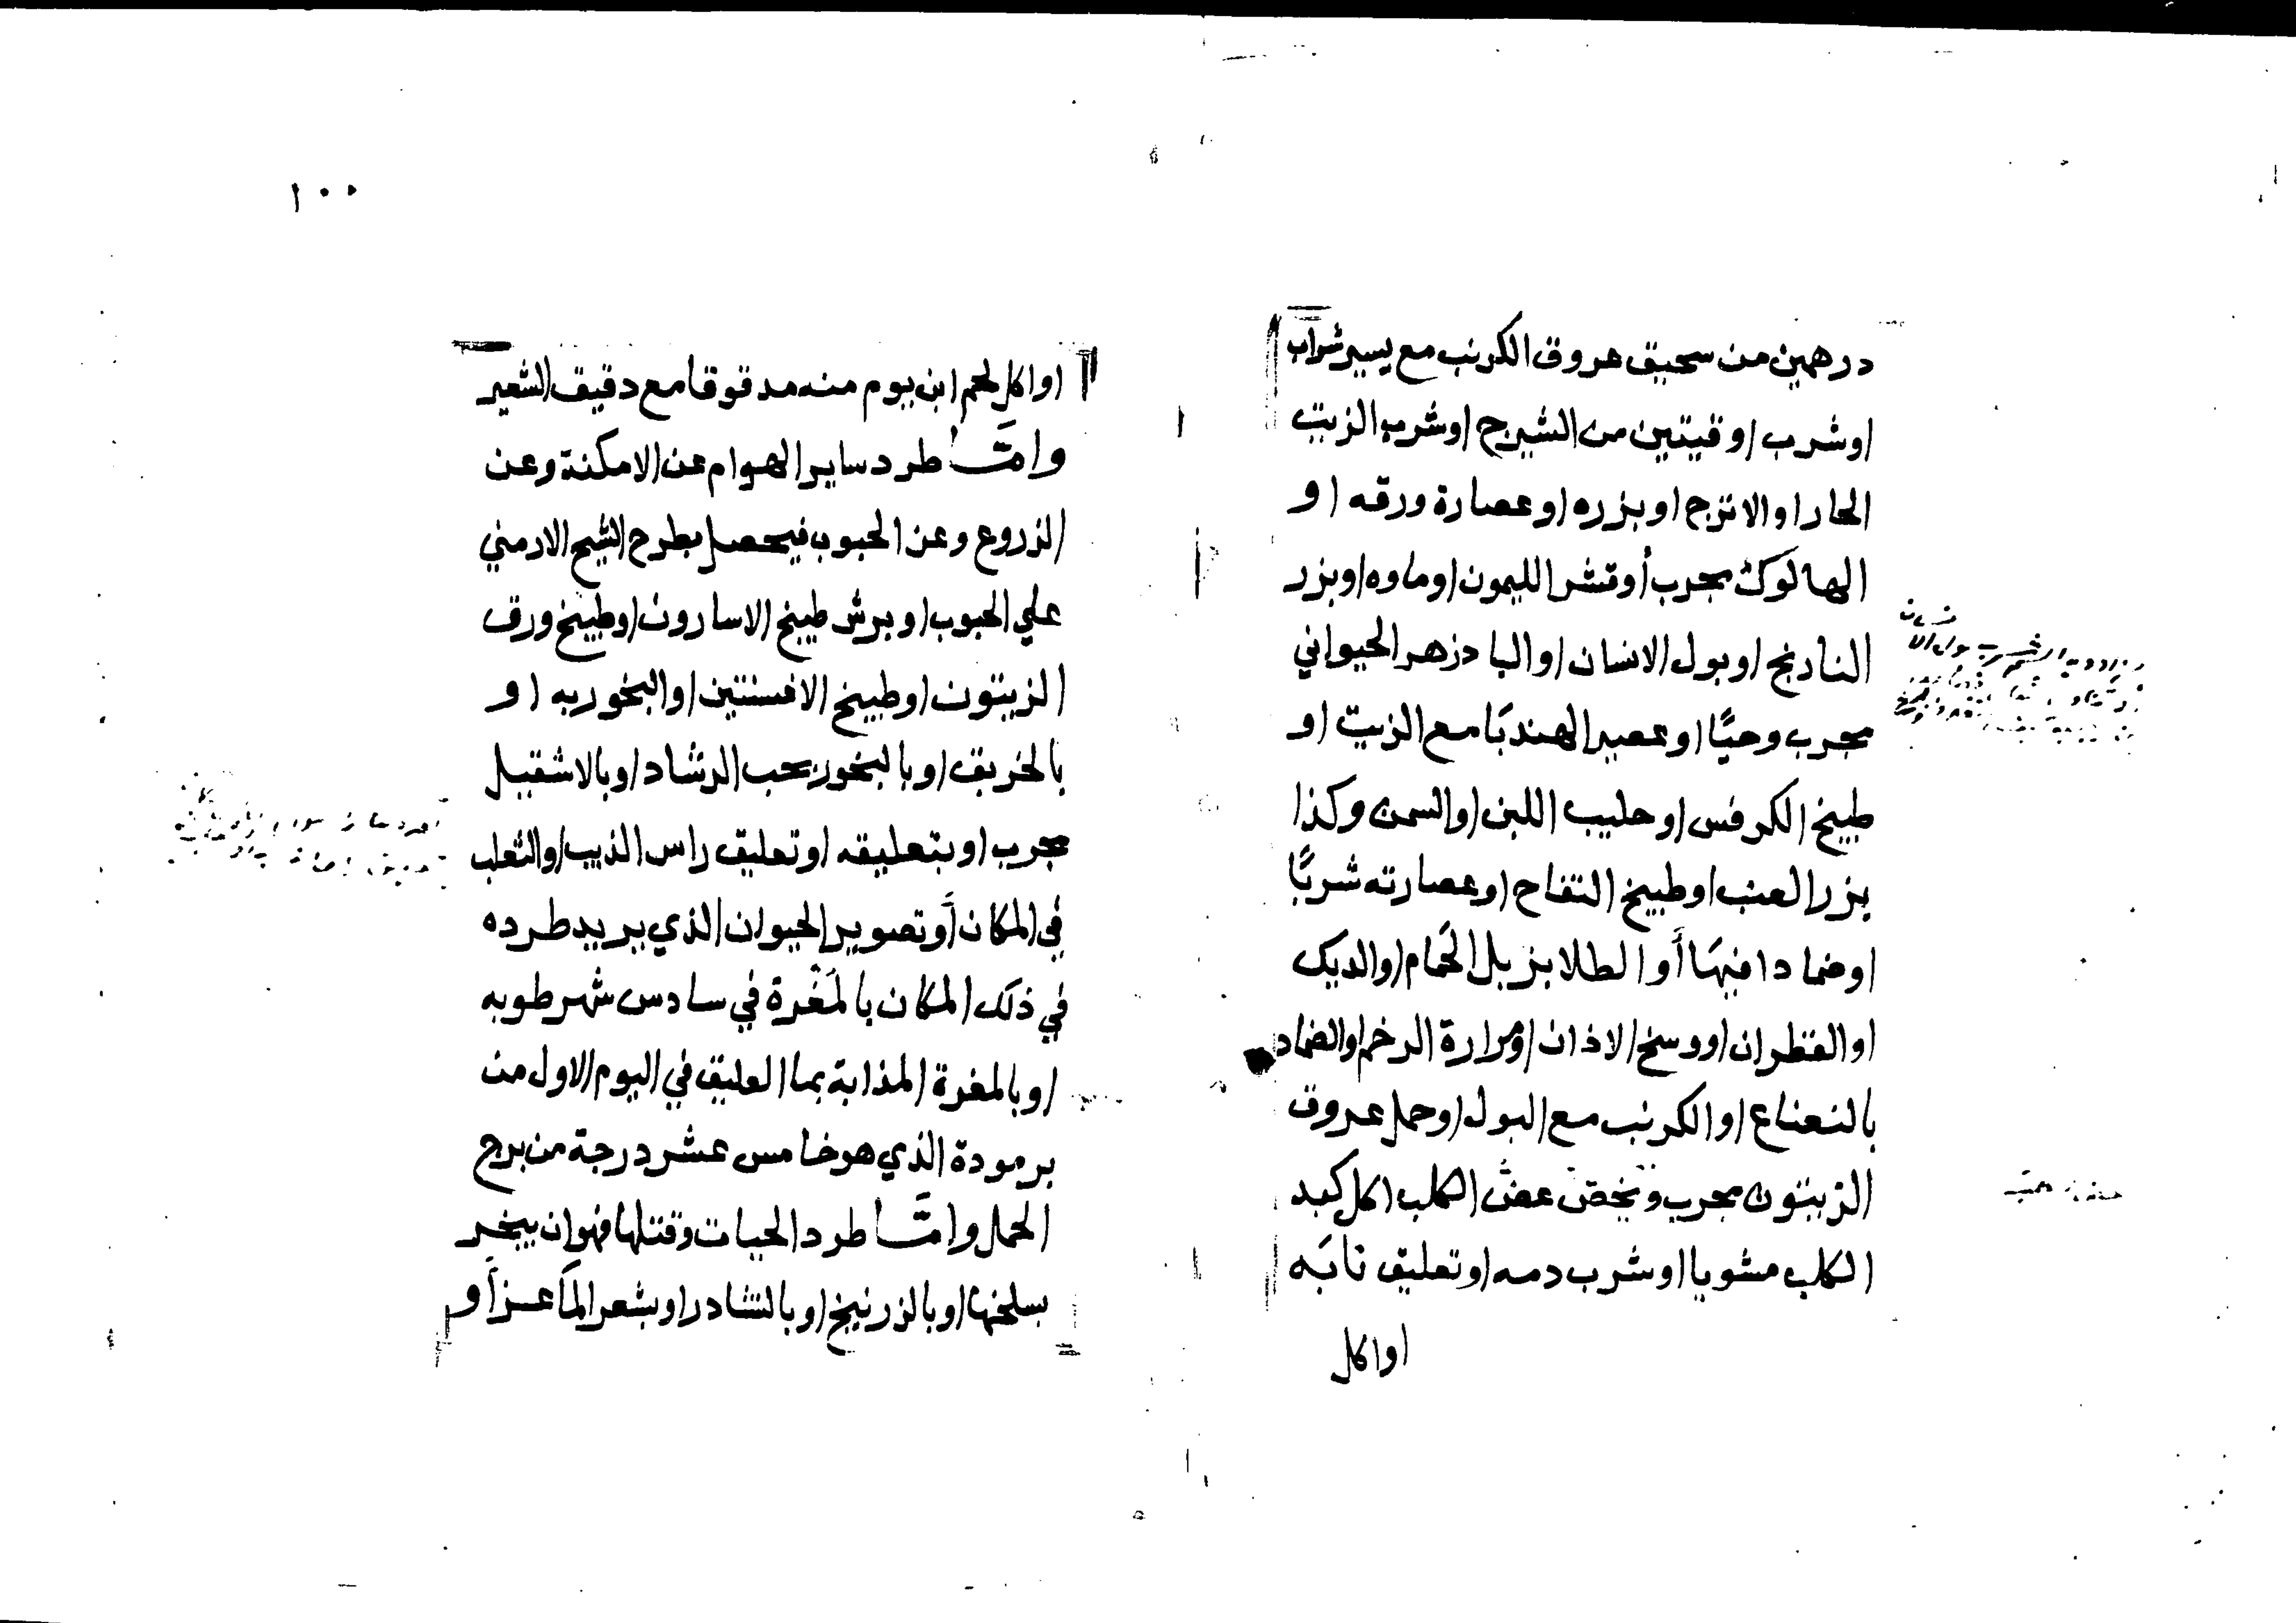 درهمين من سحيق عروق الكرنب مع يسير شراب
او شرب اوقيتين من الشيرج او شرب الزيت
الحار او الاترج او بزره او عصارة ورقه او
الهالوك مجرب أو قشر الليمون او ماوه او بزر
النارنج او بول الانسان او البادزهر الحيواني
مجرب وحيًّا او عصير الهندبَا مع الزيت او
طبيخ الكرفس او حليب اللبن او السمن وكذا
بزر العنب او طبيخ التفاح او عصارته شربًا
او ضمادا فيهَا أو الطلا بزبل الحَمام او الديك
او القطران او وسخ الاذان او مرارة الرخم او الضماد
بالنعناع او الكرنب مع البول او حمل عروق
الزيتون مجرب ويخص عض الكلب اكل كبد
الكلب مشويا او شرب دمه او تعليق نابَه
او اكل
١٠٠
او اكل لحم ابن يوم منه مدقوقا مع دقيق الشعير
وامَّا طرد ساير الهوام عن الامكنة وعن
الزروع وعن الحبوب فيحصل بطرح الشيح الارمني
علي الحبوب او برش طبيخ الاسارون او طبيخ ورق
الزيتون او طبيخ الافسنتين او البخور به او
بالخربق او بالبخور بحب الرشاد او بالاشقيل
مجرب او بتعليقه او تعليق راس الذيب او الثعلب
في المكان أو تصوير الحيوان الذي يريد طرده
في ذلك المكان بالمَغْرة في سادس شهر طوبه
او بالمغرة المذابة بما العليق في اليوم الاول من
برمودة الذي هو خامس عشر درجة من برج
الحمل وامَّا طرد الحيات وقتلها فهو ان يبخر
بسلخها او بالزرنيخ او بالنشادر او بشعر الماَعز أو